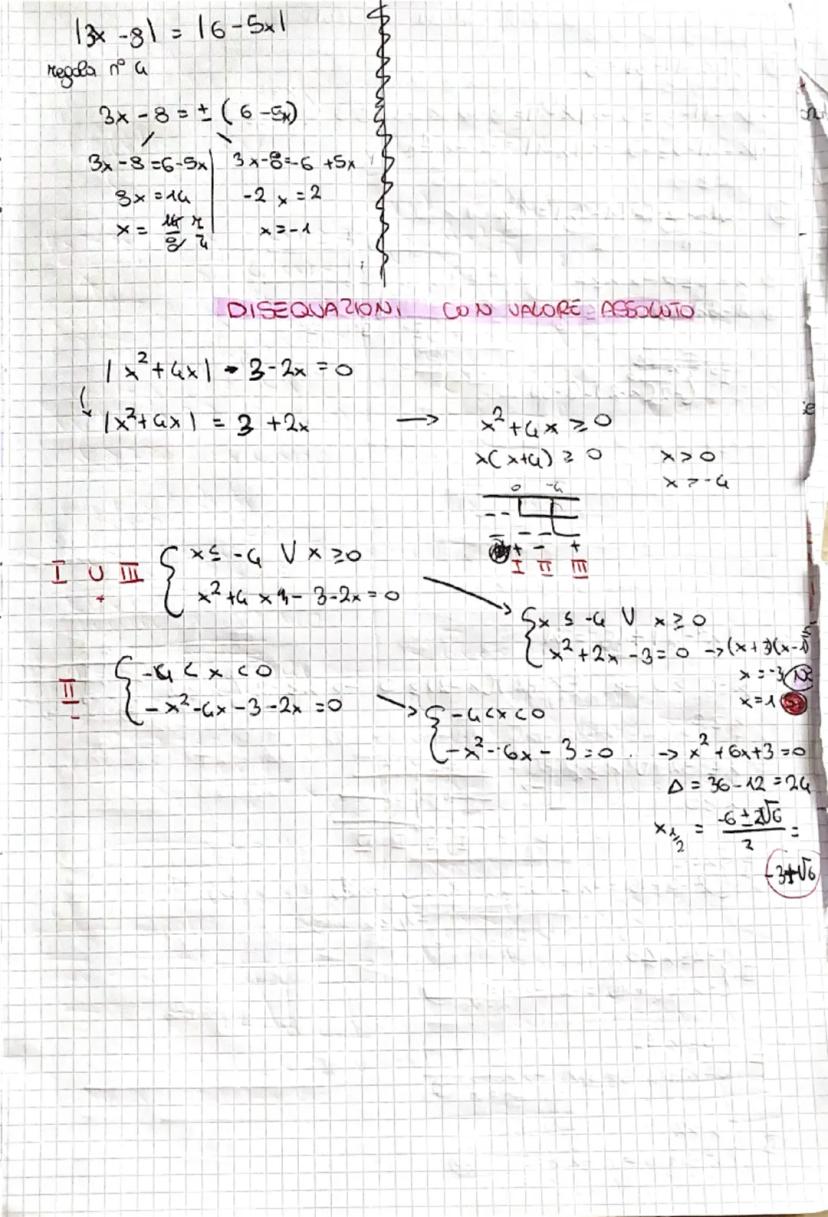 |3x - 8| = |6 - 5x|
regola n° 4
3x - 8 = ± (6 - 5x)
3x - 8 = 6 - 5x | 3x - 8 = -6 + 5x
8x = 14 | -2x = 2
x = 14/8 7/4 | x = -1
DISEQUAZIONI CON VALORE ASSOLUTO
|x² + 4x| - 3 - 2x = 0
|x² + 4x| = 3 + 2x → x² + 4x ≥ 0
x(x+4) ≥ 0 x > 0
x > -4
0 -4
+ - +
I II III
I ∪ III { x ≤ -4 ∨ x ≥ 0
+ x² + 4x - 3 - 2x = 0
{ x ≤ -4 ∨ x ≥ 0
x² + 2x - 3 = 0 → (x + 3)(x - 1)
x = -3
x = 1
II { -4 < x < 0
- -x² - 4x - 3 - 2x = 0
{ -4 < x < 0
-x² - 6x - 3 = 0 → x² + 6x + 3 = 0
Δ = 36 - 12 = 24
x₁/₂ = -6 ± 2√6 / 2 =
-3 + √6